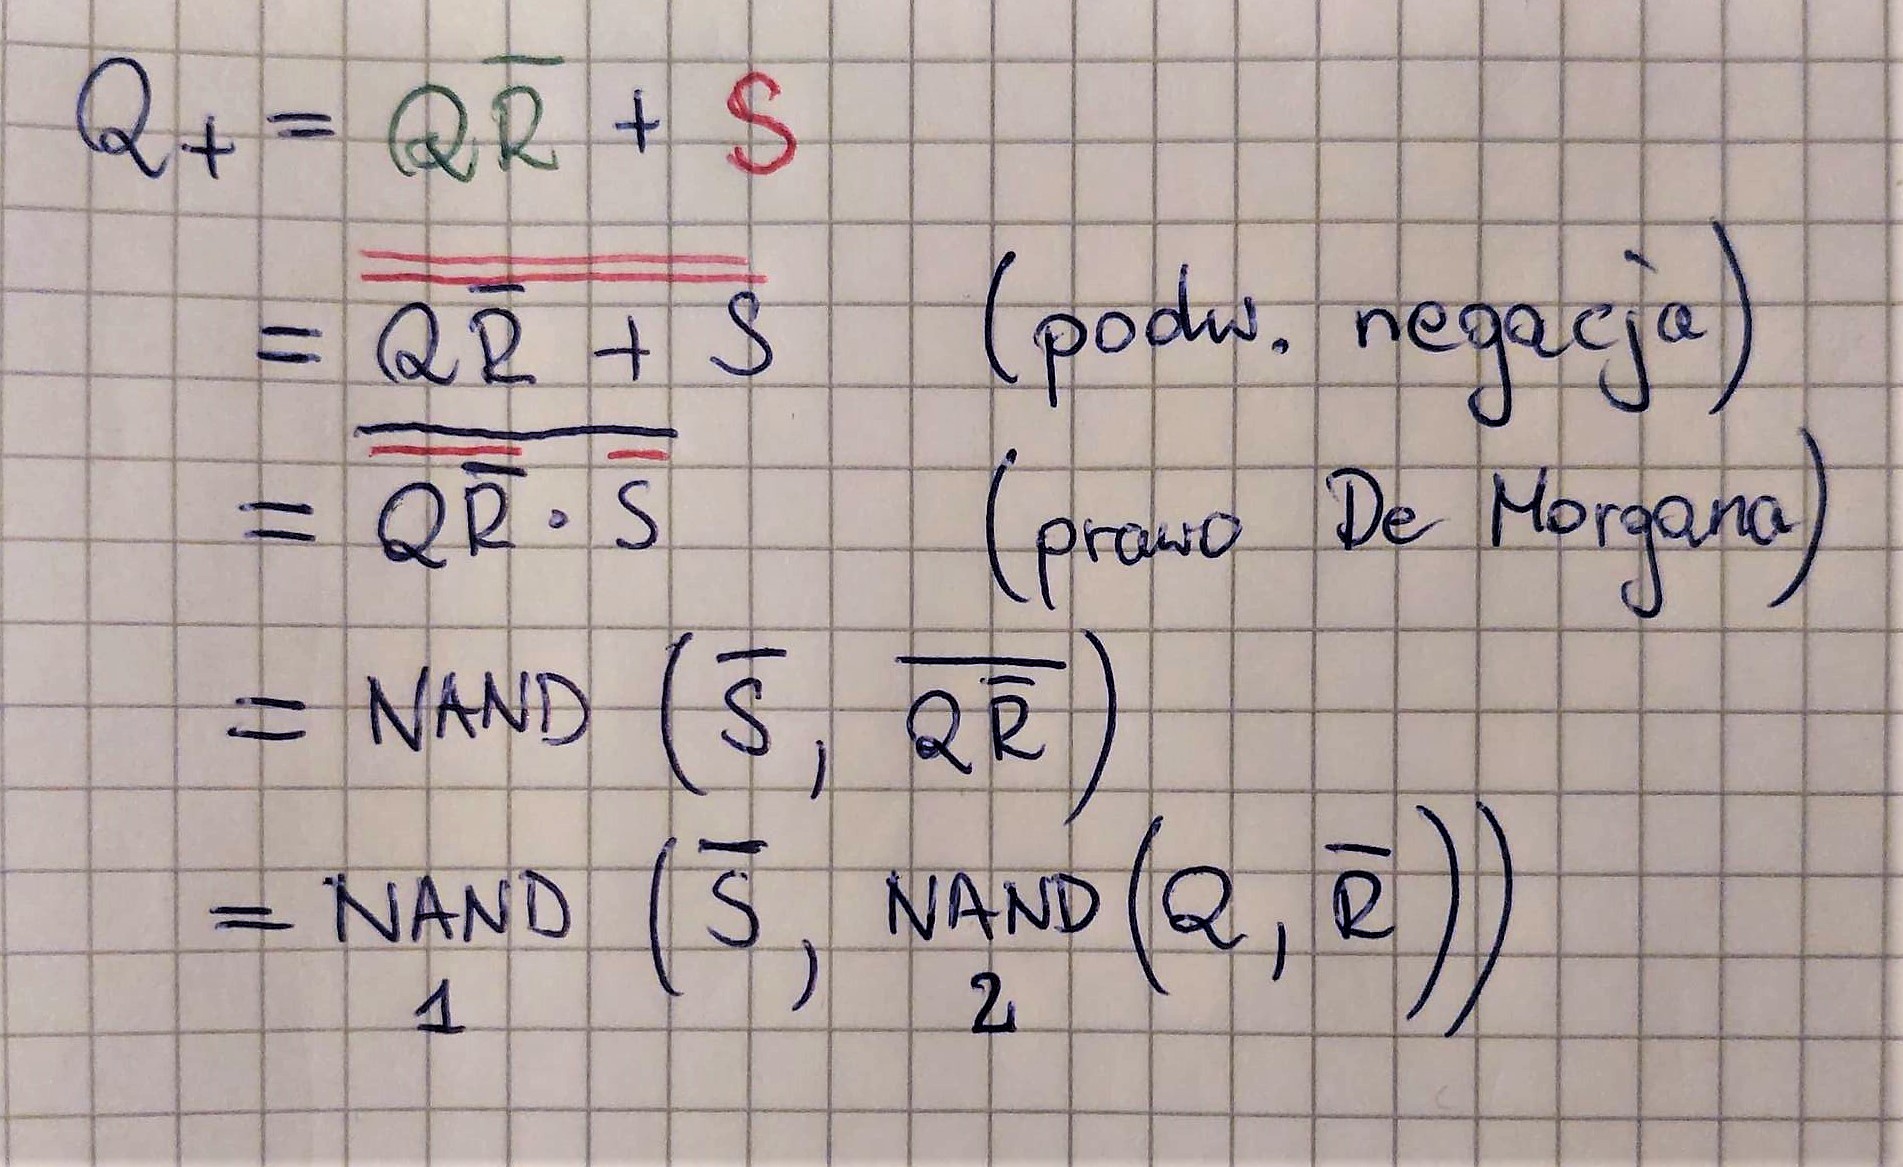 Q₊ = QR̅ + S
= \overline{\overline{QR̅ + S}} (podw. negacja)
= \overline{\overline{QR̅} · \overline{S}} (prawo De Morgana)
= NAND (S̅, \overline{QR̅})
= NAND (S̅, NAND(Q, R̅))
1 2